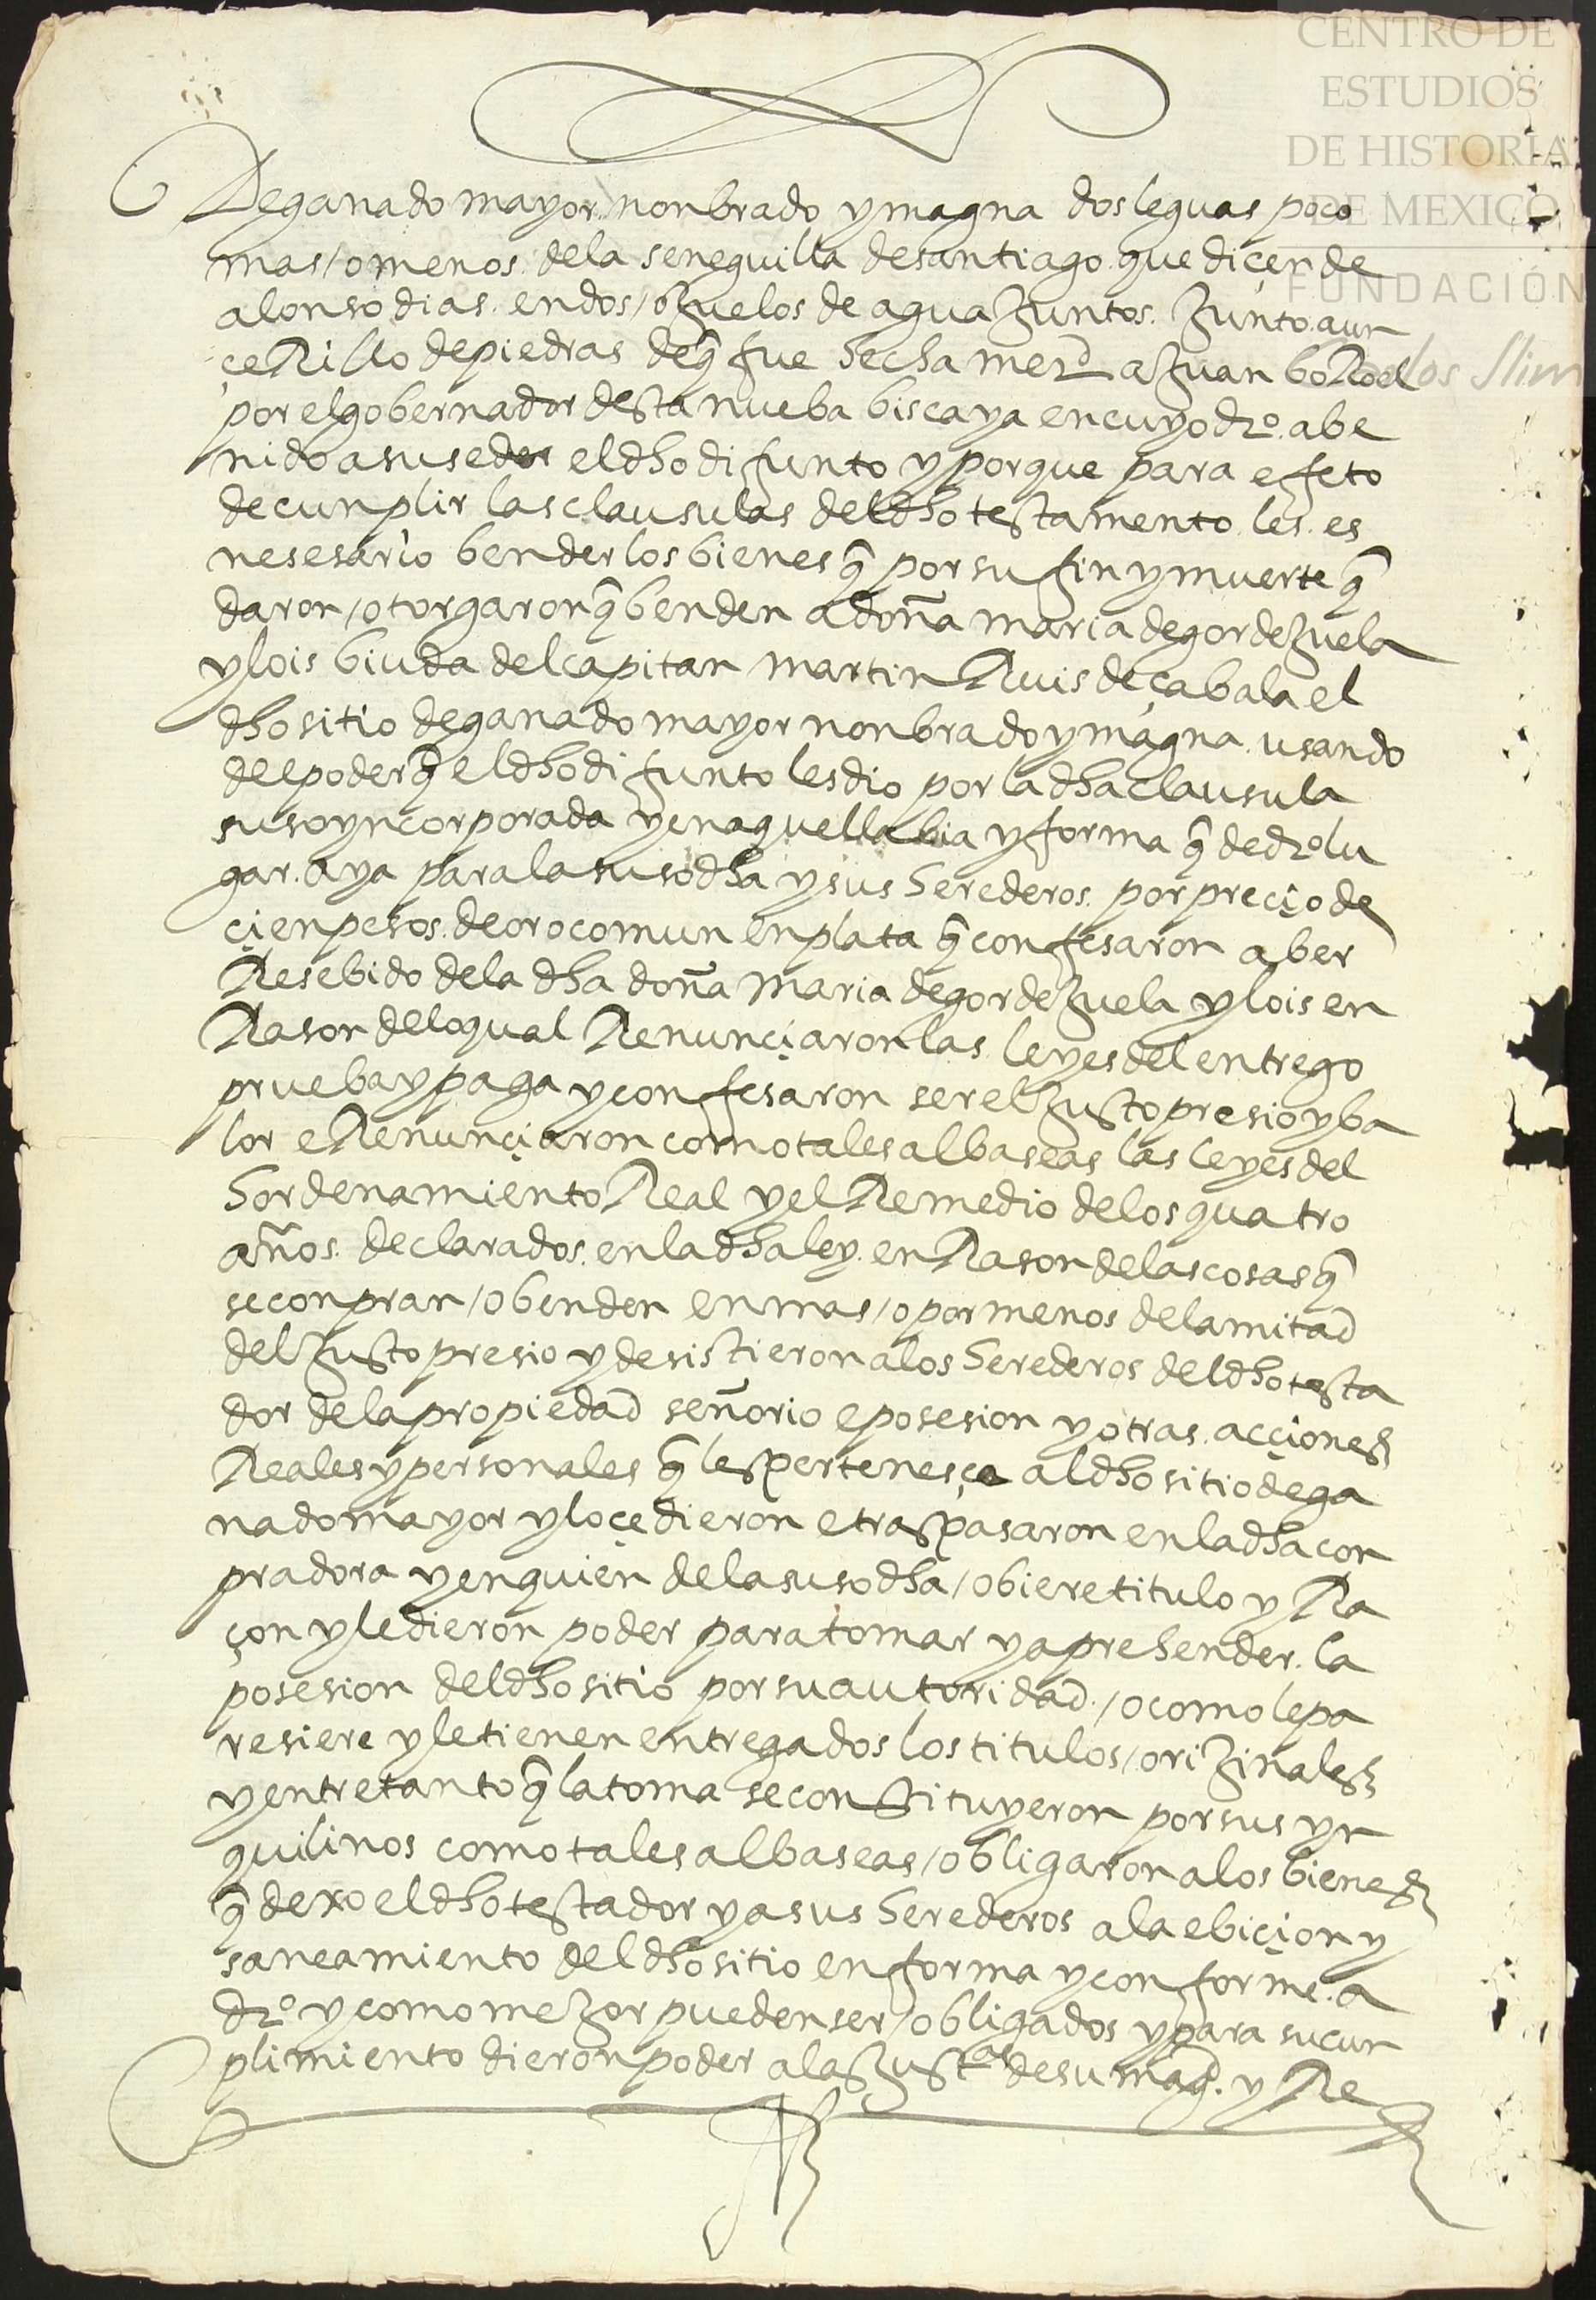 CENTRO DE
ESTUDIOS
DE HISTORIA
DE MEXICO
FUNDACIÓN
Carlos Slim
De ganado mayor nonbrado ymagna dos leguas poco
mas / o menos. de la seneguilla de santiago que diçen de
alonso dias. en dos / ojuelos de agua juntos. junto. a un
çeRillo de piedras de q̃ fue hecha merd a juan boRoel
por el gobernador desta nueba biscaya en cuyo dro. a be
nido a suseder el dho difunto y porque para efeto
de cunplir las clausulas del dho testamento. les. es
nesesario bender los bienes q̃ por su fin y muerte q̃
daron / otorgaron q̃ benden a doña maria de gordejuela
y lois biuda del capitan martin Ruis de çabala el
dho sitio de ganado mayor nonbrado ymagna. usando
del poder q̃ el dho difunto les dio por la dha clausula
suso yncorporada y en aquella bia y forma q̃ de dro lu
gar. aya para la susodha y sus herederos. por preçio de
çien pesos. de oro comun en plata q̃ confesaron aber
Resebido de la dha doña maria de gordejuela y lois en
Rason de lo qual Renunçiaron las leyes del entrego
prueba y paga y confesaron ser el justo presio y ba
lor e Renunçiaron como tales albaseas las leyes del
hordenamiento Real y el Remedio de los quatro
años. declarados. en la dha ley. en Rason de las cosas q̃
se conpran / o benden en mas / o por menos de la mitad
del justo presio y desistieron a los herederos del dho testa
dor de la propiedad señorio e posesion y otras. acçiones
Reales y personales q̃ les pertenesçe al dho sitio de ga
nado mayor y lo çedieron e traspasaron en la dha con
pradora y en quien de la susodha / obiere titulo y Ra
çon y le dieron poder para tomar y aprehender. la
posesion del dho sitio por su autoridad. / o como le pa
resiere y le tienen entregados los titulos / orijinales
y entre tanto q̃ la toma se constituyeron por sus yn
quilinos como tales albaseas / obligaron a los bienes
q̃ dexo el dho testador y a sus herederos a la ebiçion y
saneamiento del dho sitio en forma y conforme. a
dro. y como mejor pueden ser / obligados y para su cun
plimiento dieron poder a las justas de su magd. y Re